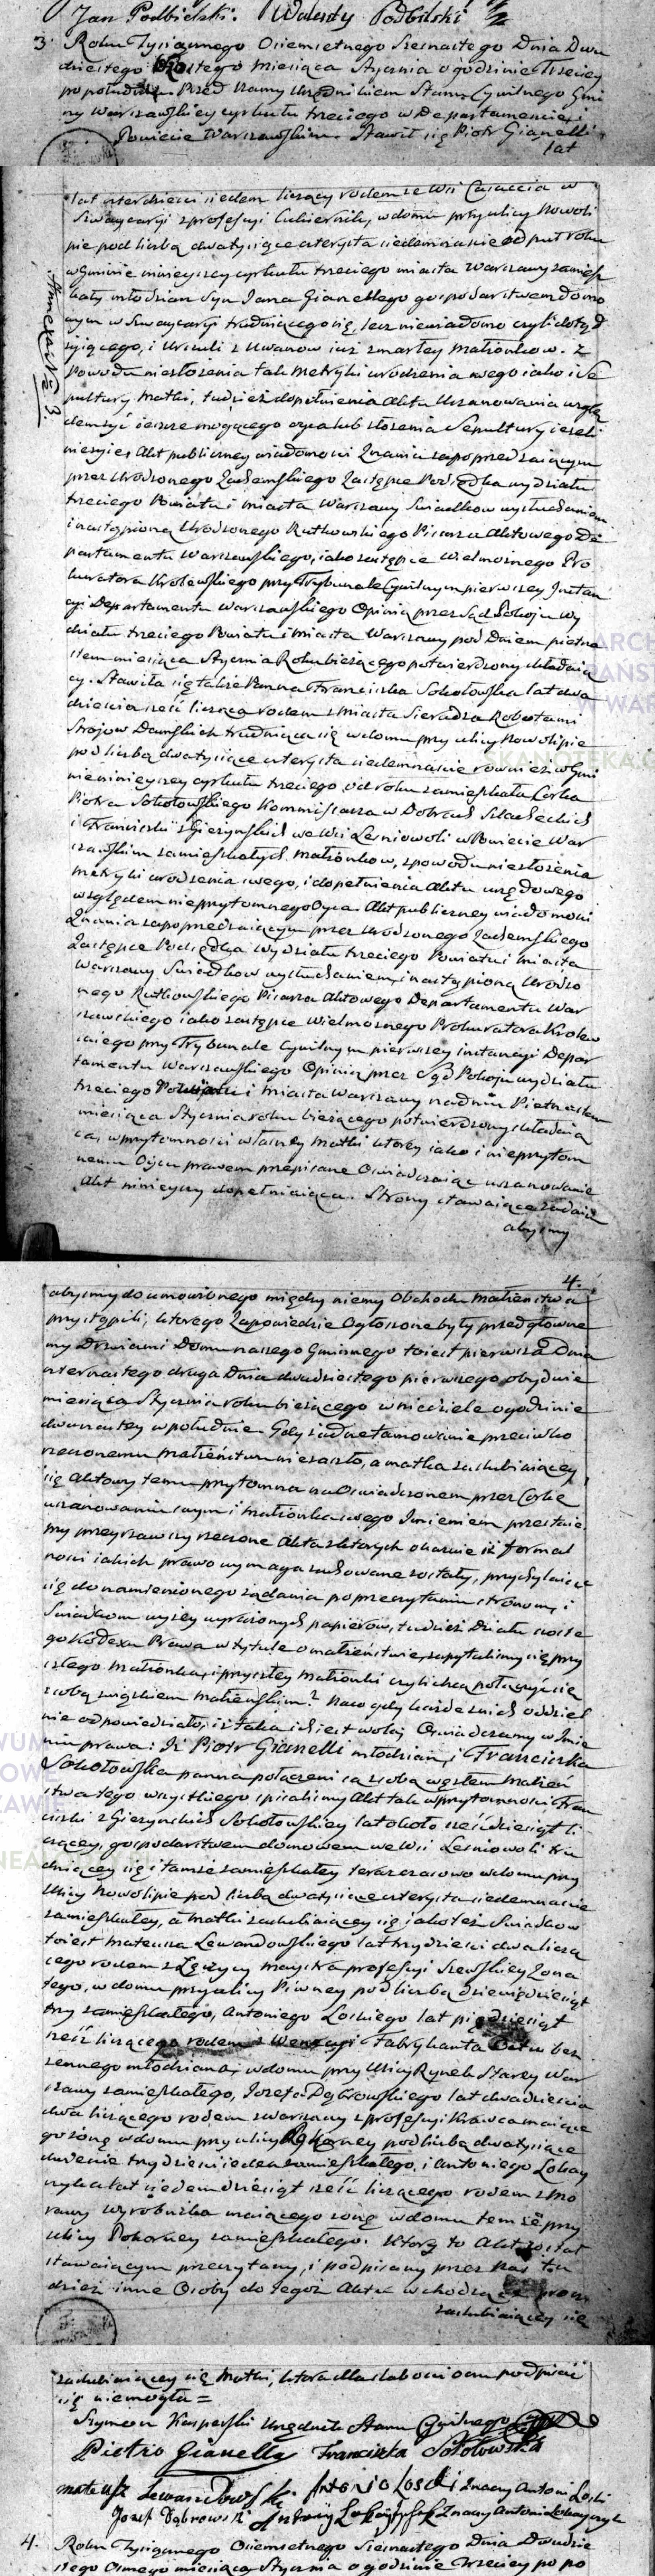 Jan Podbielski. Walenty Podbilski
3. Roku Tysiącznego Osiemsetnego Szesnastego Dnia Dwu
dziestego Szostego Miesiąca Stycznia o godzinie Trzeciey
po południu. Przed Nami Urzędnikiem Stanu Cywilnego Gmi
ny Warszawskiey cyrkułu trzeciego w Departamencie i
Powiecie Warszawskim. Stawił się Piotr Gianelli
lat
lat czterdzieści siedem liczący rodem ze Wsi Casaccia w
Szwaycaryi z professyi Cukiernik, w domu przy ulicy Nowoli
pie pod liczbą dwa tysiące czterysta siedemnaście od puł roku
w Gminie ninieyszey cyrkułu trzeciego miasta Warszawy zamiesz
kały młodzian Syn Jana Gianellego gospodarstwem domo
wym w Szwaycaryi trudniącego się, lecz niewiadomo czyli dotąd
żyiącego, i Urszuli z Uwanow już zmarłey Małżonkow. Z
Annexa Nro 3.
powodu niezłożenia tak Metryki urodzenia swego iako i Se
pultury Matki, tudzież dopełnienia Aktu Uszanowania wzglę
dem żyć ieszcze mogącego oyca lub złożenia Sepultury ieżeli
nieżyie, Akt publiczney wiadomości Znania zapoprzedzaiącym
przez Urodzonego Zachemskiego Zastępce Podsędka wydziału
trzeciego Powiatu i Miasta Warszawy Swiadkow wysłuchaniem
i nastąpioną Urodzonego Rutkowskiego Pisarza Aktowego De
partamentu Warszawskiego, iako zastępce Wielmożnego Pro
kuratora Krolewskiego przy Trybunale Cywilnym pierwszey Instan
cyi Departamentu Warszawskiego Opinią przez Sąd Pokoju Wy
działu trzeciego Powiatu i Miasta Warszawy pod Dniem pietna
stem miesiąca Stycznia Roku bieżącego potwierdzony składaią
cy. Stawiła się także Panna Franciszka Sokołowska lat dwa
dzieścia sześć licząca rodem z Miasta Sieradza Robotami
Stroiow Damskich trudniąca się w domu przy ulicy Nowolipie
pod liczbą dwa tysiące czterysta siedemnaście rownież w Gmi
nie ninieyszey cyrkułu trzeciego od roku zamieszkała Corka
Piotra Sokołowskiego Kommissarza w Dobrach Szlacheckich
i Franciszki z Gierzynskich we Wsi Lesniowoli w Powiecie War
szawskim zamieszkałych Małżonkow, z powodu niezłożenia
metryki urodzenia swego, i dopełnienia Aktu urzędowego
względem nieprzytomnego Oyca. Akt publiczney wiadomości
Znania zapoprzedzaiącym przez Urodzonego Zachemskiego
Zastępce Podsędka Wydziału trzeciego Powiatu i Miasta
Warszawy Swiadkow wysłuchaniem, i nastąpioną Urodzo
nego Rutkowskiego Pisarza Aktowego Departamentu War
szawskiego iako zastępce Wielmożnego Prokuratora Krolew
skiego przy Trybunale Cywilnym pierwszey instancyi Depar
tamentu Warszawskiego Opinią przez Sąd Pokoju wydziału
trzeciego Powiatu i Miasta Warszawy na dniu Pietnastem
miesiąca Stycznia roku bieżącego potwierdzony składaią
ca, w przytomności własney Matki ktorey iako i nieprzytom
nemu Oycu prawem przepisane Oswiadczaiąc uszanowanie
Akt ninieyszy dopełniaiąca. Strony stawaiące żądaią
abysmy
4.
abysmy do umowionego między niemy Obchodu Małżenstwa
przystąpili, ktorego Zapowiedzie Ogłoszone były przed głowne
my Drzwiami Domu naszego Gminnego to iest pierwsza Dnia
czternastego druga Dnia dwudziestego pierwszego obydwie
miesiąca Stycznia roku bieżącego w niedziele o godzinie
dwunastey w południe. Gdy żadne tamowanie przeciwko
rzeczonemu Małżenstwu nie zaszło, a matka zaslubiaiącey
się Aktowi temu przytomna na Oswiadczonem przez Corkę
uszanowaniu swym i małżonka swego Imieniem przestaie
my przeyrzawszy rzeczone Akta z ktorych okazuie iż formal
ności iakich prawo wymaga zachowane zostały, przychylaiąc
się do namienionego żądania po przeczytaniu stronom, i
Swiadkom wyżey wyrażonych papierow, tudzież Działu szoste
go Kodexu Prawa w tytule o małżenstwie, zapytalismy się przy
szłego Małżonka, i przyszłey Małżonki czyli chcą połączyć się
z sobą związkiem Małżenskim? Na co gdy każde z nich oddziel
nie odpowiedziało, iż taka ich iest wola, Oswiadczamy w Imie
niu prawa: Iż Piotr Gianelli młodzian, i Franciszka
Sokołowska panna połączeni są z sobą węzłem Małżeń
stwa tego wszystkiego spisalismy Akt tak w przytomności Fran
ciszki z Gierzynskich Sokołowskiey lat około sześćdziesiąt li
czącey, gospodarstwem domowem we Wsi Lesniowoli tru
dniącey się i tamże zamieszkałey teraz czasowo w domu przy
Ulicy Nowolipie pod liczbą dwa tysiące czterysta siedemnaście
zamieszkałey, a matki zaslubiaiącey się iako też Swiadkow
to iest Mateusza Lewandowskiego lat trzydzieści dwa liczą
cego rodem z Łęczycy Maystra professyi Szewskiey Żona
tego, w domu przy ulicy Piwney pod liczbą dziewięćdziesiąt
trzy zamieszkałego, Antoniego Loskiego lat pięćdziesiąt
sześć liczącego rodem z Wenecyi Fabrykanta Octu bez
żennego młodziana, w domu przy Ulicy Rynek Starey War
szawy zamieszkałego, Jozefa Dąbrowskiego lat dwadzieścia
dwa liczącego rodem z Warszawy z professyi Krawca maiące
go żonę w domu przy ulicy Pokorney pod liczbą dwa tysiące
dwieście trzydzieści ieden zamieszkałego, i Antoniego Lobay
czyka lat siedemdziesiąt sześć liczącego rodem z Mo
rawy wyrobnika maiącego żonę w domu tem że przy
ulicy Pokorney zamieszkałego. Ktory to Akt został
stawaiącym przeczytany, i podpisany przez Nas tu
dzież inne Osoby do tegoż Aktu wchodzące procz
zaslubiaiącey się
zaslubiaiącey się Matki, ktora dla słabości oczu podpisać
się niemogła =
Szymon Kasperski Urzędnik Stanu Cywilnego
Pietro Gianelly Franciszka Sokołowska
Mateusz Lewandowski. Antonio Loschi Znaczy Antoni Loski
Jozef Dąbrowski Znaczy Antoni Lobayczyk
4. Roku Tysiącznego Osiemsetnego Szesnastego Dnia Dwudzie
stego Osmego miesiąca Stycznia o godzinie trzeciey po po